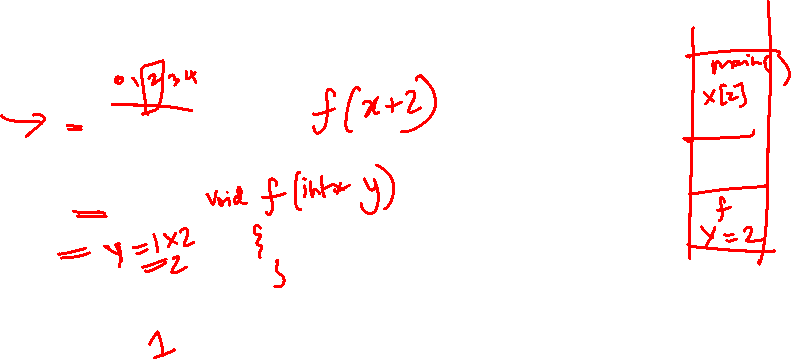 0 1 2 3 4
f(x+2)
void f(int* y)
{
}
= y = 1x2
= 2
1
main()
x[2]
f
y = 2